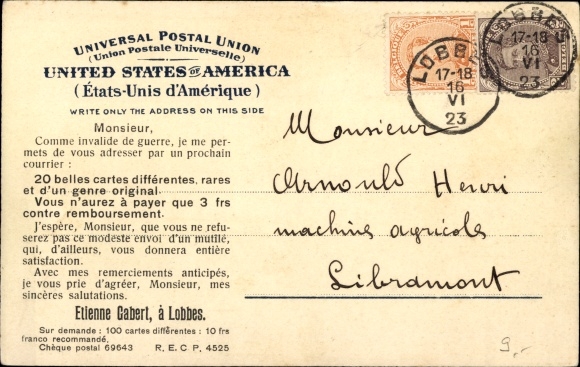 UNIVERSAL POSTAL UNION
(Union Postale Universelle)
UNITED STATES OF AMERICA
(États-Unis d'Amérique)
WRITE ONLY THE ADDRESS ON THIS SIDE
Monsieur,
Comme invalide de guerre, je me per-
mets de vous adresser par un prochain
courrier :
20 belles cartes différentes, rares
et d'un genre original.
Vous n'aurez à payer que 3 frs
contre remboursement.
J'espère, Monsieur, que vous ne refu-
serez pas ce modeste envoi d'un mutilé,
qui, d'ailleurs, vous donnera entière
satisfaction.
Avec mes remerciements anticipés,
je vous prie d'agréer, Monsieur, mes
sincères salutations.
Etienne Gabert, à Lobbes.
Sur demande : 100 cartes différentes : 10 frs
franco recommandé,
Chèque postal 69643 R. E. C P. 4525
LOBBES
17-18
16
VI
23
LOBBES
17-18
16
VI
23
Monsieur
Arnould Henri
machines agricoles
Libramont
9.-